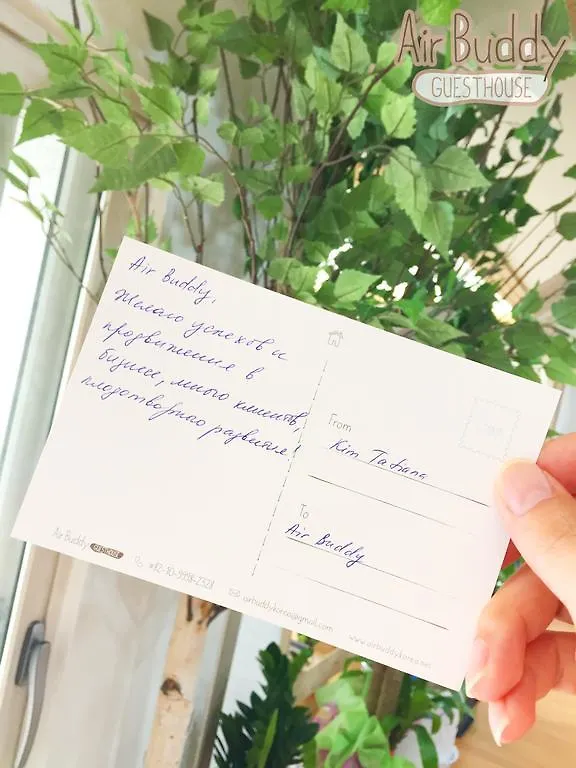 Air Buddy
GUESTHOUSE
Air Buddy,
Желаю успехов и
продвижения в
бизнесе, много клиентов,
плодотворного развития!
From
Kim Tatiana
To
Air Buddy
Air Buddy GUESTHOUSE
airbuddykorea@gmail.com
www.airbuddykorea.net